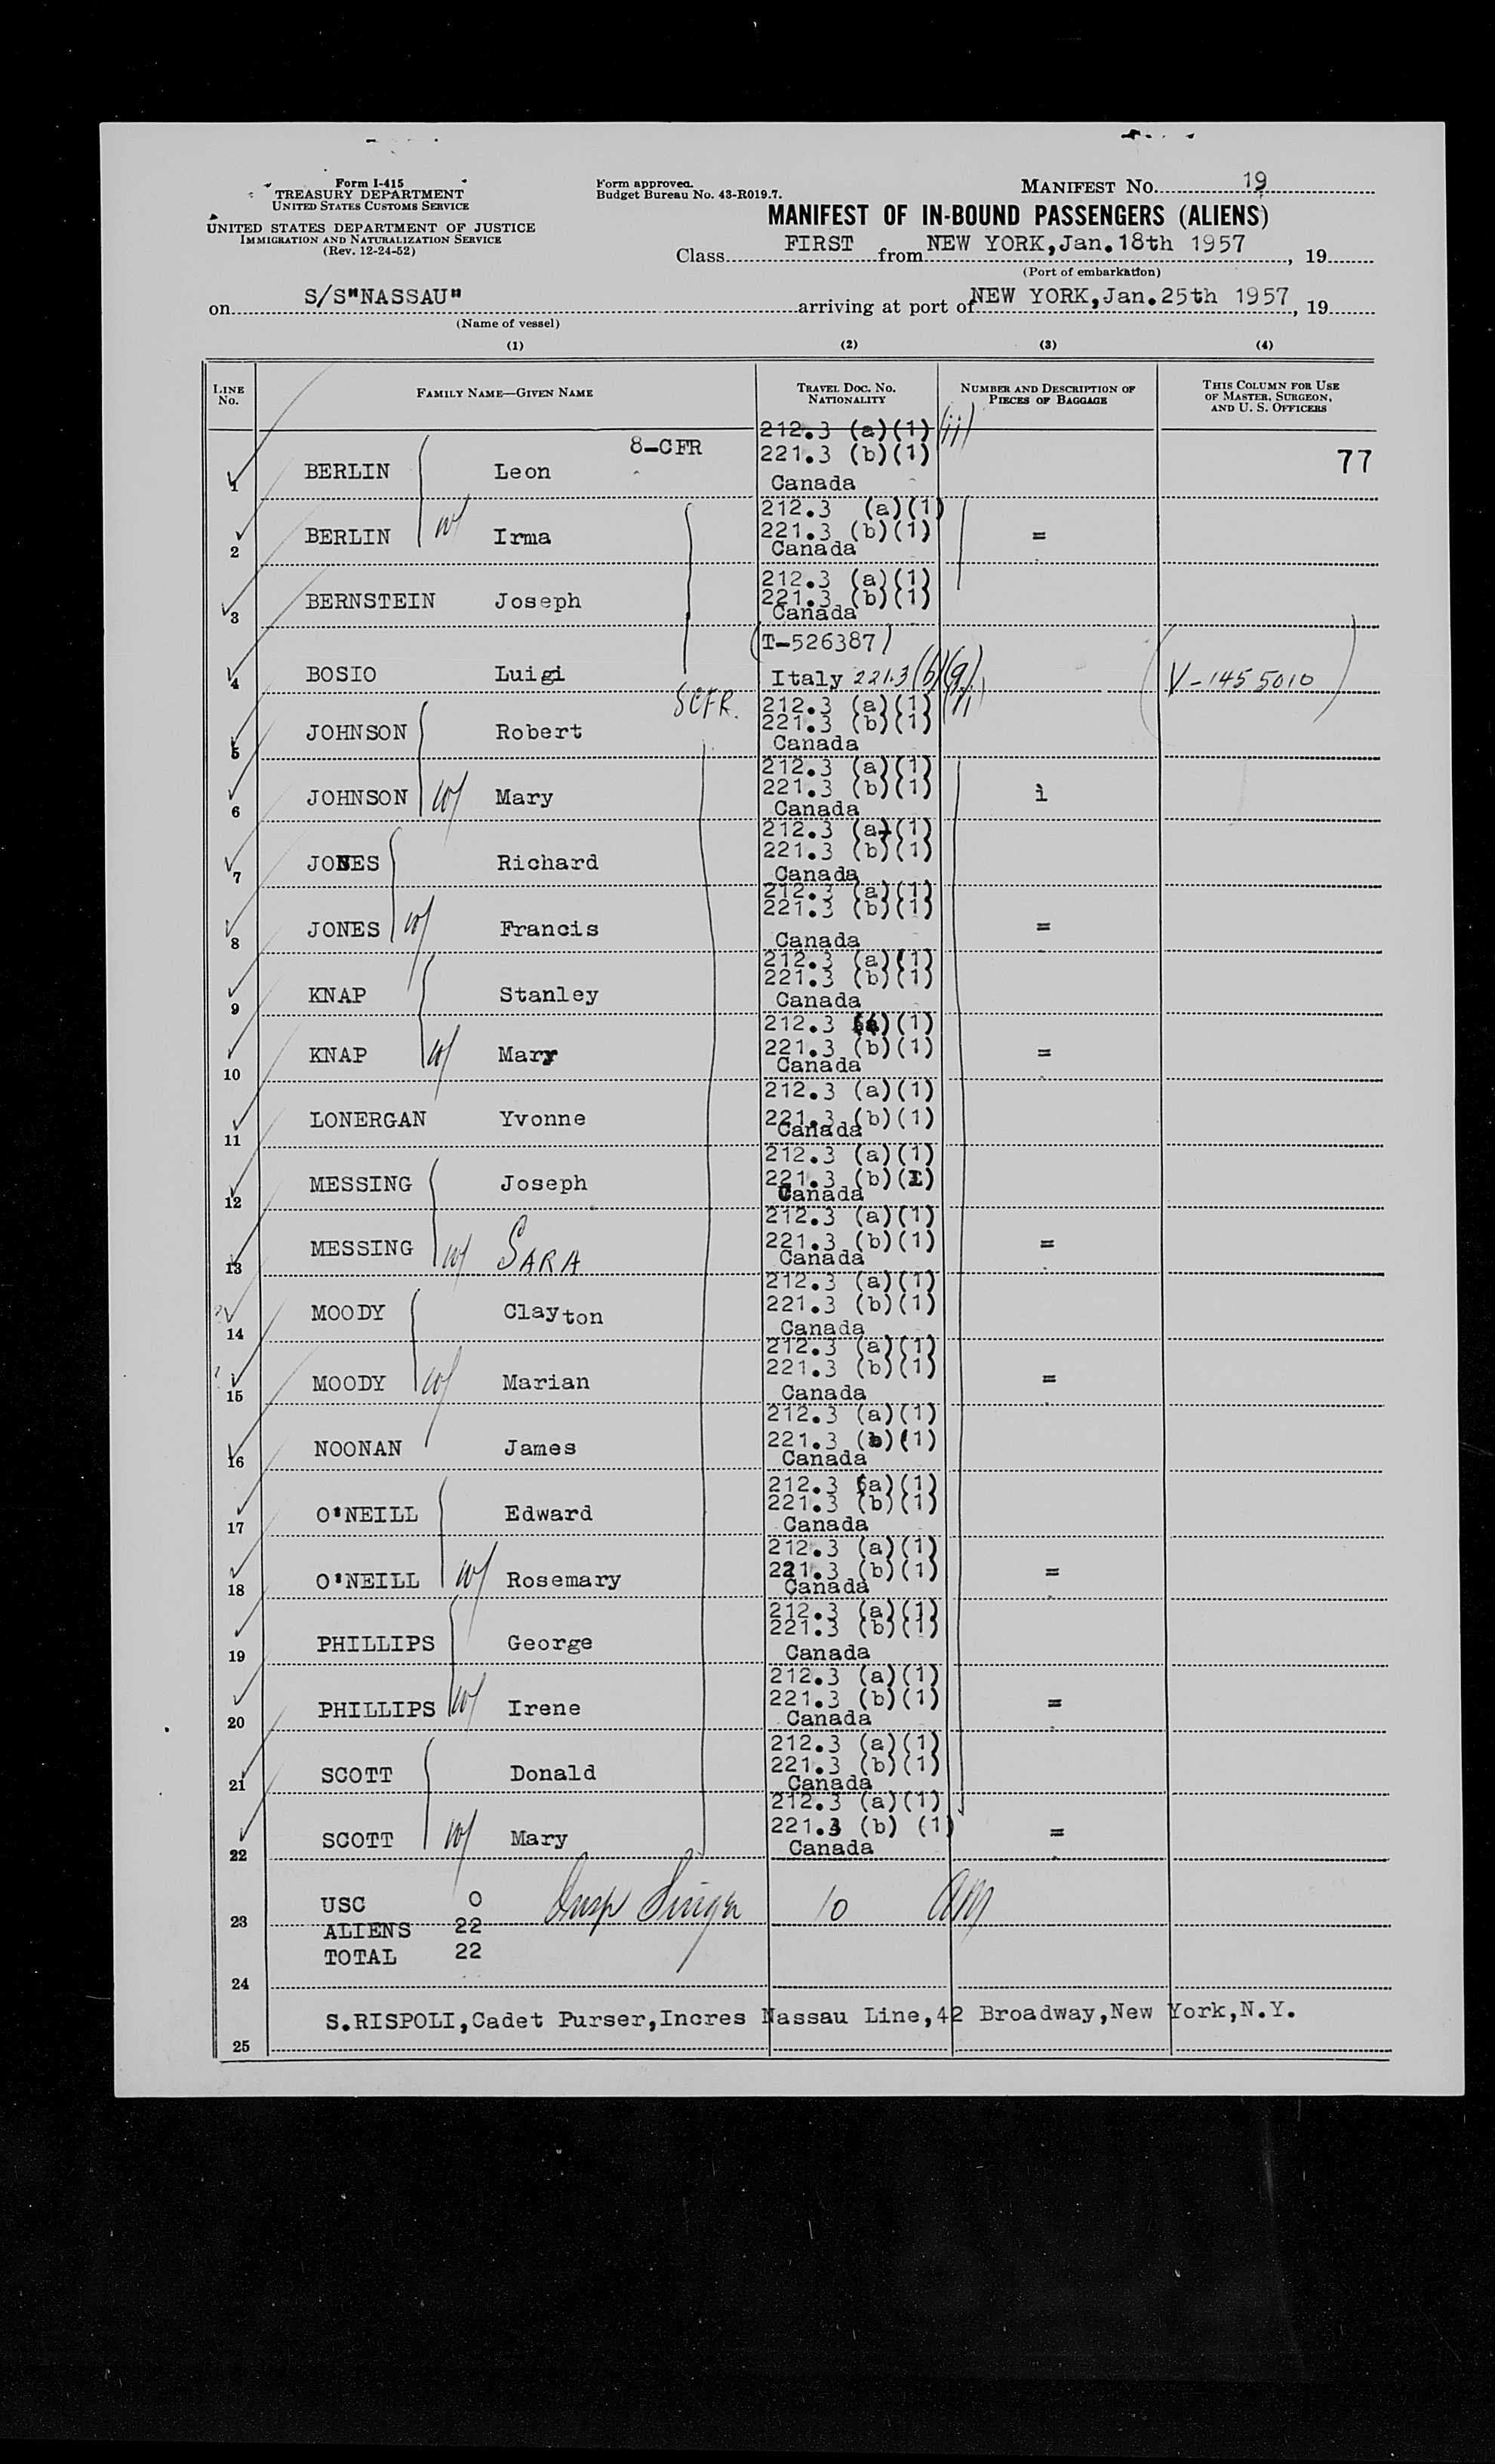 Form I-415
TREASURY DEPARTMENT
UNITED STATES CUSTOMS SERVICE
UNITED STATES DEPARTMENT OF JUSTICE
IMMIGRATION AND NATURALIZATION SERVICE
(Rev. 12-24-52)
Form approved.
Budget Bureau No. 43-R019.7.
MANIFEST NO. 19
MANIFEST OF IN-BOUND PASSENGERS (ALIENS)
Class FIRST from NEW YORK,Jan.18th 1957, 19
(Port of embarkation)
on S/S"NASSAU" arriving at port of NEW YORK,Jan.25th 1957, 19
(Name of vessel)
(1) (2) (3) (4)
LINE No. FAMILY NAME—GIVEN NAME TRAVEL DOC. NO. NATIONALITY NUMBER AND DESCRIPTION OF PIECES OF BAGGAGE THIS COLUMN FOR USE OF MASTER, SURGEON, AND U. S. OFFICERS
212.3 (a)(1) (ii)
8-CFR 221.3 (b)(1) 77
1 BERLIN Leon Canada
212.3 (a)(1)
221.3 (b)(1)
2 BERLIN w/ Irma Canada =
212.3 (a)(1)
221.3 (b)(1)
3 BERNSTEIN Joseph Canada
(T-526387)
4 BOSIO Luigi Italy 221.3(b)(g) V-1455010
8CFR. 212.3 (a)(1)
221.3 (b)(1)
5 JOHNSON Robert Canada
212.3 (a)(1)
221.3 (b)(1)
6 JOHNSON w/ Mary Canada
212.3 (a)(1)
221.3 (b)(1)
7 JONES Richard Canada
212.3 (a)(1)
221.3 (b)(1)
8 JONES w/ Francis Canada =
212.3 (a)(1)
221.3 (b)(1)
9 KNAP Stanley Canada
212.3 (a)(1)
221.3 (b)(1)
10 KNAP w/ Mary Canada =
212.3 (a)(1)
221.3 (b)(1)
11 LONERGAN Yvonne Canada
212.3 (a)(1)
221.3 (b)(1)
12 MESSING Joseph Canada
212.3 (a)(1)
221.3 (b)(1)
13 MESSING w/ SARA Canada =
212.3 (a)(1)
221.3 (b)(1)
14 MOODY Clayton Canada
212.3 (a)(1)
221.3 (b)(1)
15 MOODY w/ Marian Canada =
212.3 (a)(1)
221.3 (b)(1)
16 NOONAN James Canada
212.3 (a)(1)
221.3 (b)(1)
17 O'NEILL Edward Canada
212.3 (a)(1)
221.3 (b)(1)
18 O'NEILL w/ Rosemary Canada =
212.3 (a)(1)
221.3 (b)(1)
19 PHILLIPS George Canada
212.3 (a)(1)
221.3 (b)(1)
20 PHILLIPS w/ Irene Canada =
212.3 (a)(1)
221.3 (b)(1)
21 SCOTT Donald Canada
212.3 (a)(1)
221.3 (b) (1)
22 SCOTT w/ Mary Canada =
USC 0 Insp Singer 10
23 ALIENS 22
TOTAL 22
24
S.RISPOLI,Cadet Purser,Incres Nassau Line,42 Broadway,New York,N.Y.
25